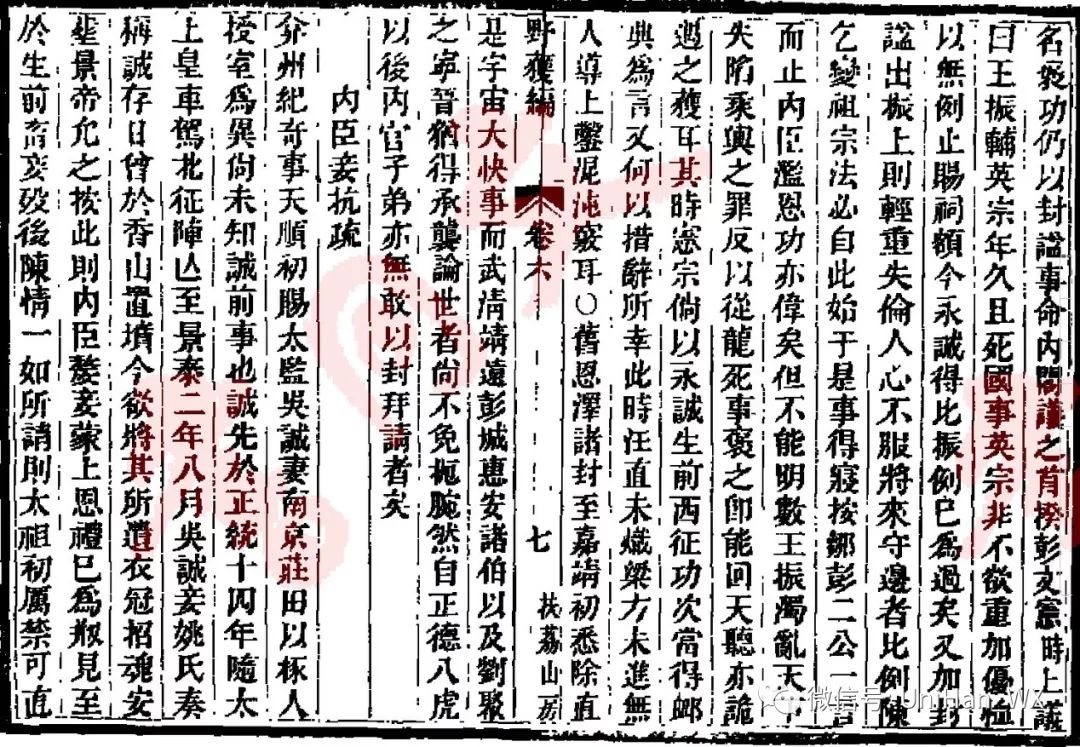 名褒功仍以封諡事命內閣議之首揆彭文憲時上議
曰王振輔英宗年久且死國事英宗非不欲重加優恤
以無例止賜祠額今永誠得比振例巳為過矣又加封
諡出振上則輕重失倫人心不服將來守邊者比例陳
乞變祖宗法必自此始于是事得寢按鄒彭二公一言
而止內臣濫恩功亦偉矣但不能明數王振濁亂天下
失陷乘輿之罪反以從龍死事褒之即能回天聽亦詭
遇之獲耳其時憲宗倘以永誠生前西征功次當得卹
典爲言又何以措辭所幸此時汪直未熾梁方未進無
人導上鑿混沌竅耳○舊恩澤諸封至嘉靖初悉除直
野獲編 卷六 七 扶荔山房
是宇宙大快事而武清靖遠彭城惠安諸伯以及劉聚
之寧晉猶得承襲論世者尚不免扼腕然自正德八虎
以後內官子弟亦無敢以封拜請者矣
內臣妾抗疏
弇州紀奇事天順初賜太監吳誠妻南京莊田以椓人
授室爲異尚未知誠前事也誠先於正統十四年隨太
上皇車駕北征陣亾至景泰二年八月吳誠妾姚氏奏
稱誠存日曾於香山置墳今欲將其所遺衣冠招魂安
塟景帝允之按此則內臣嫠妾蒙上恩禮巳爲剏見至
於生前畜妾歿後陳情一如所請則太祖初厲禁可直
微信号: UniHan_WX